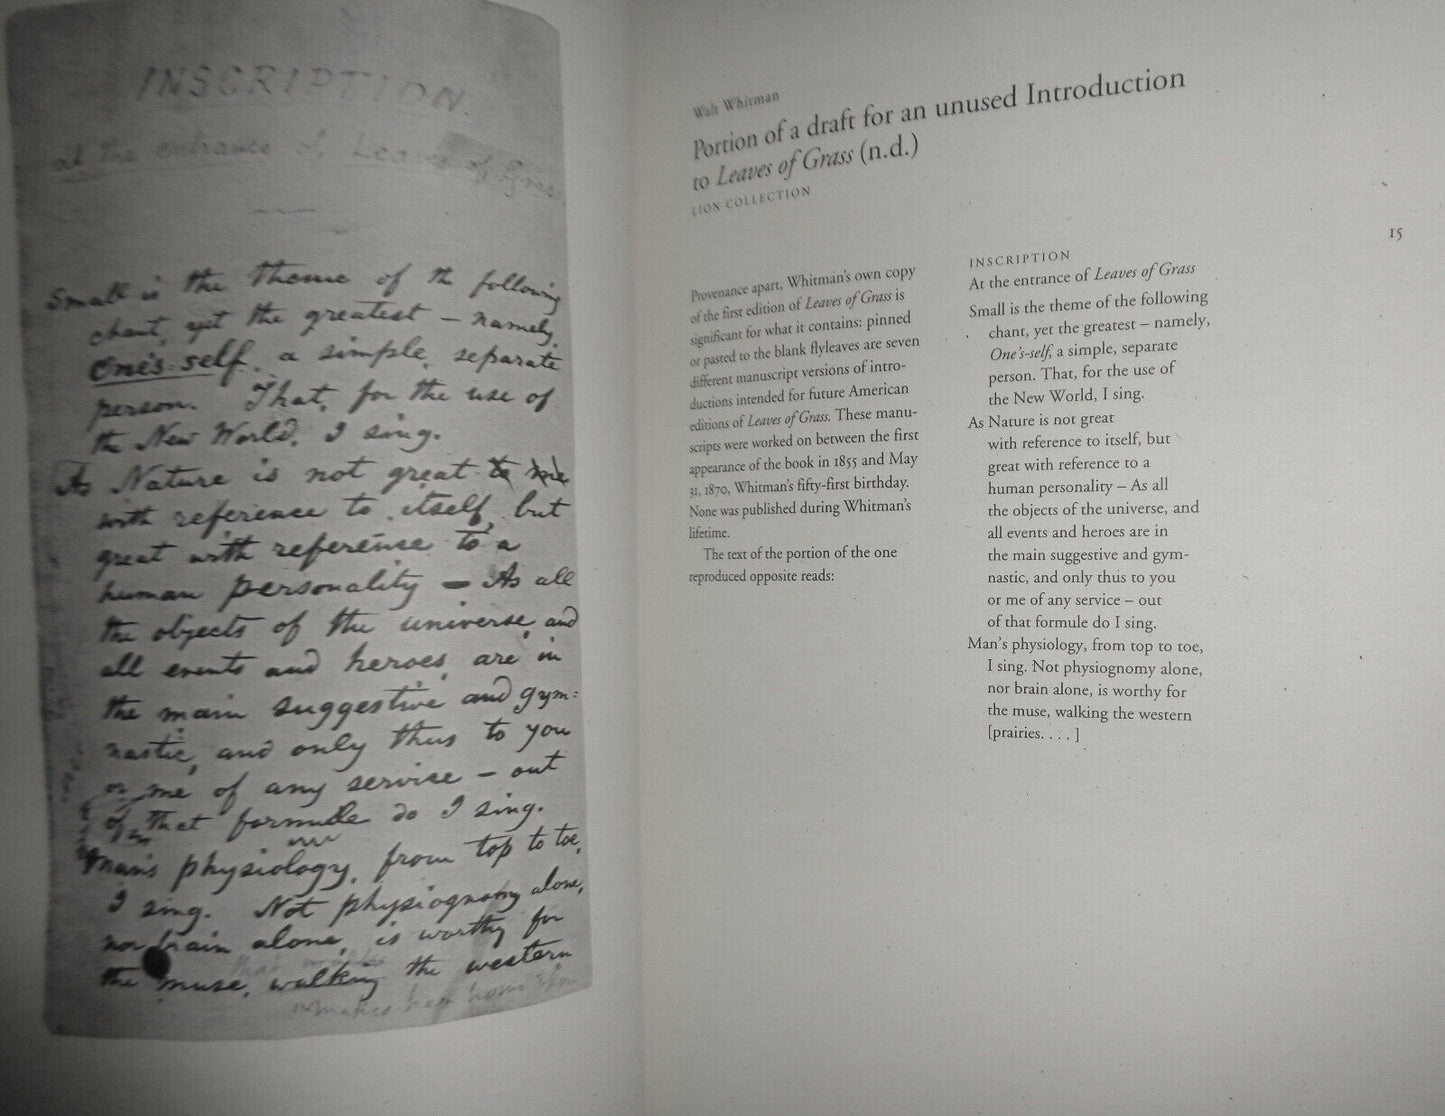 INSCRIPTION
at the entrance of Leaves of Grass
Small is the theme of the following
chant, yet the greatest – namely,
One's-self, a simple, separate
person. That, for the use of
the New World, I sing.
As Nature is not great to me
with reference to itself, but
great with reference to a
human personality – As all
the objects of the universe, and
all events and heroes, are in
the main suggestive and gym-
nastic, and only thus to you
or me of any service – out
of that formule do I sing.
Man's physiology, from top to toe,
I sing. Not physiognomy alone,
nor brain alone, is worthy for
the muse, walking the western
makes her home
Walt Whitman
Portion of a draft for an unused Introduction
to Leaves of Grass (n.d.)
LION COLLECTION
15
Provenance apart, Whitman's own copy
of the first edition of Leaves of Grass is
significant for what it contains: pinned
or pasted to the blank flyleaves are seven
different manuscript versions of intro-
ductions intended for future American
editions of Leaves of Grass. These manu-
scripts were worked on between the first
appearance of the book in 1855 and May
31, 1870, Whitman's fifty-first birthday.
None was published during Whitman's
lifetime.
The text of the portion of the one
reproduced opposite reads:
INSCRIPTION
At the entrance of Leaves of Grass
Small is the theme of the following
chant, yet the greatest – namely,
One's-self, a simple, separate
person. That, for the use of
the New World, I sing.
As Nature is not great
with reference to itself, but
great with reference to a
human personality – As all
the objects of the universe, and
all events and heroes are in
the main suggestive and gym-
nastic, and only thus to you
or me of any service – out
of that formule do I sing.
Man's physiology, from top to toe,
I sing. Not physiognomy alone,
nor brain alone, is worthy for
the muse, walking the western
[prairies. . . . ]